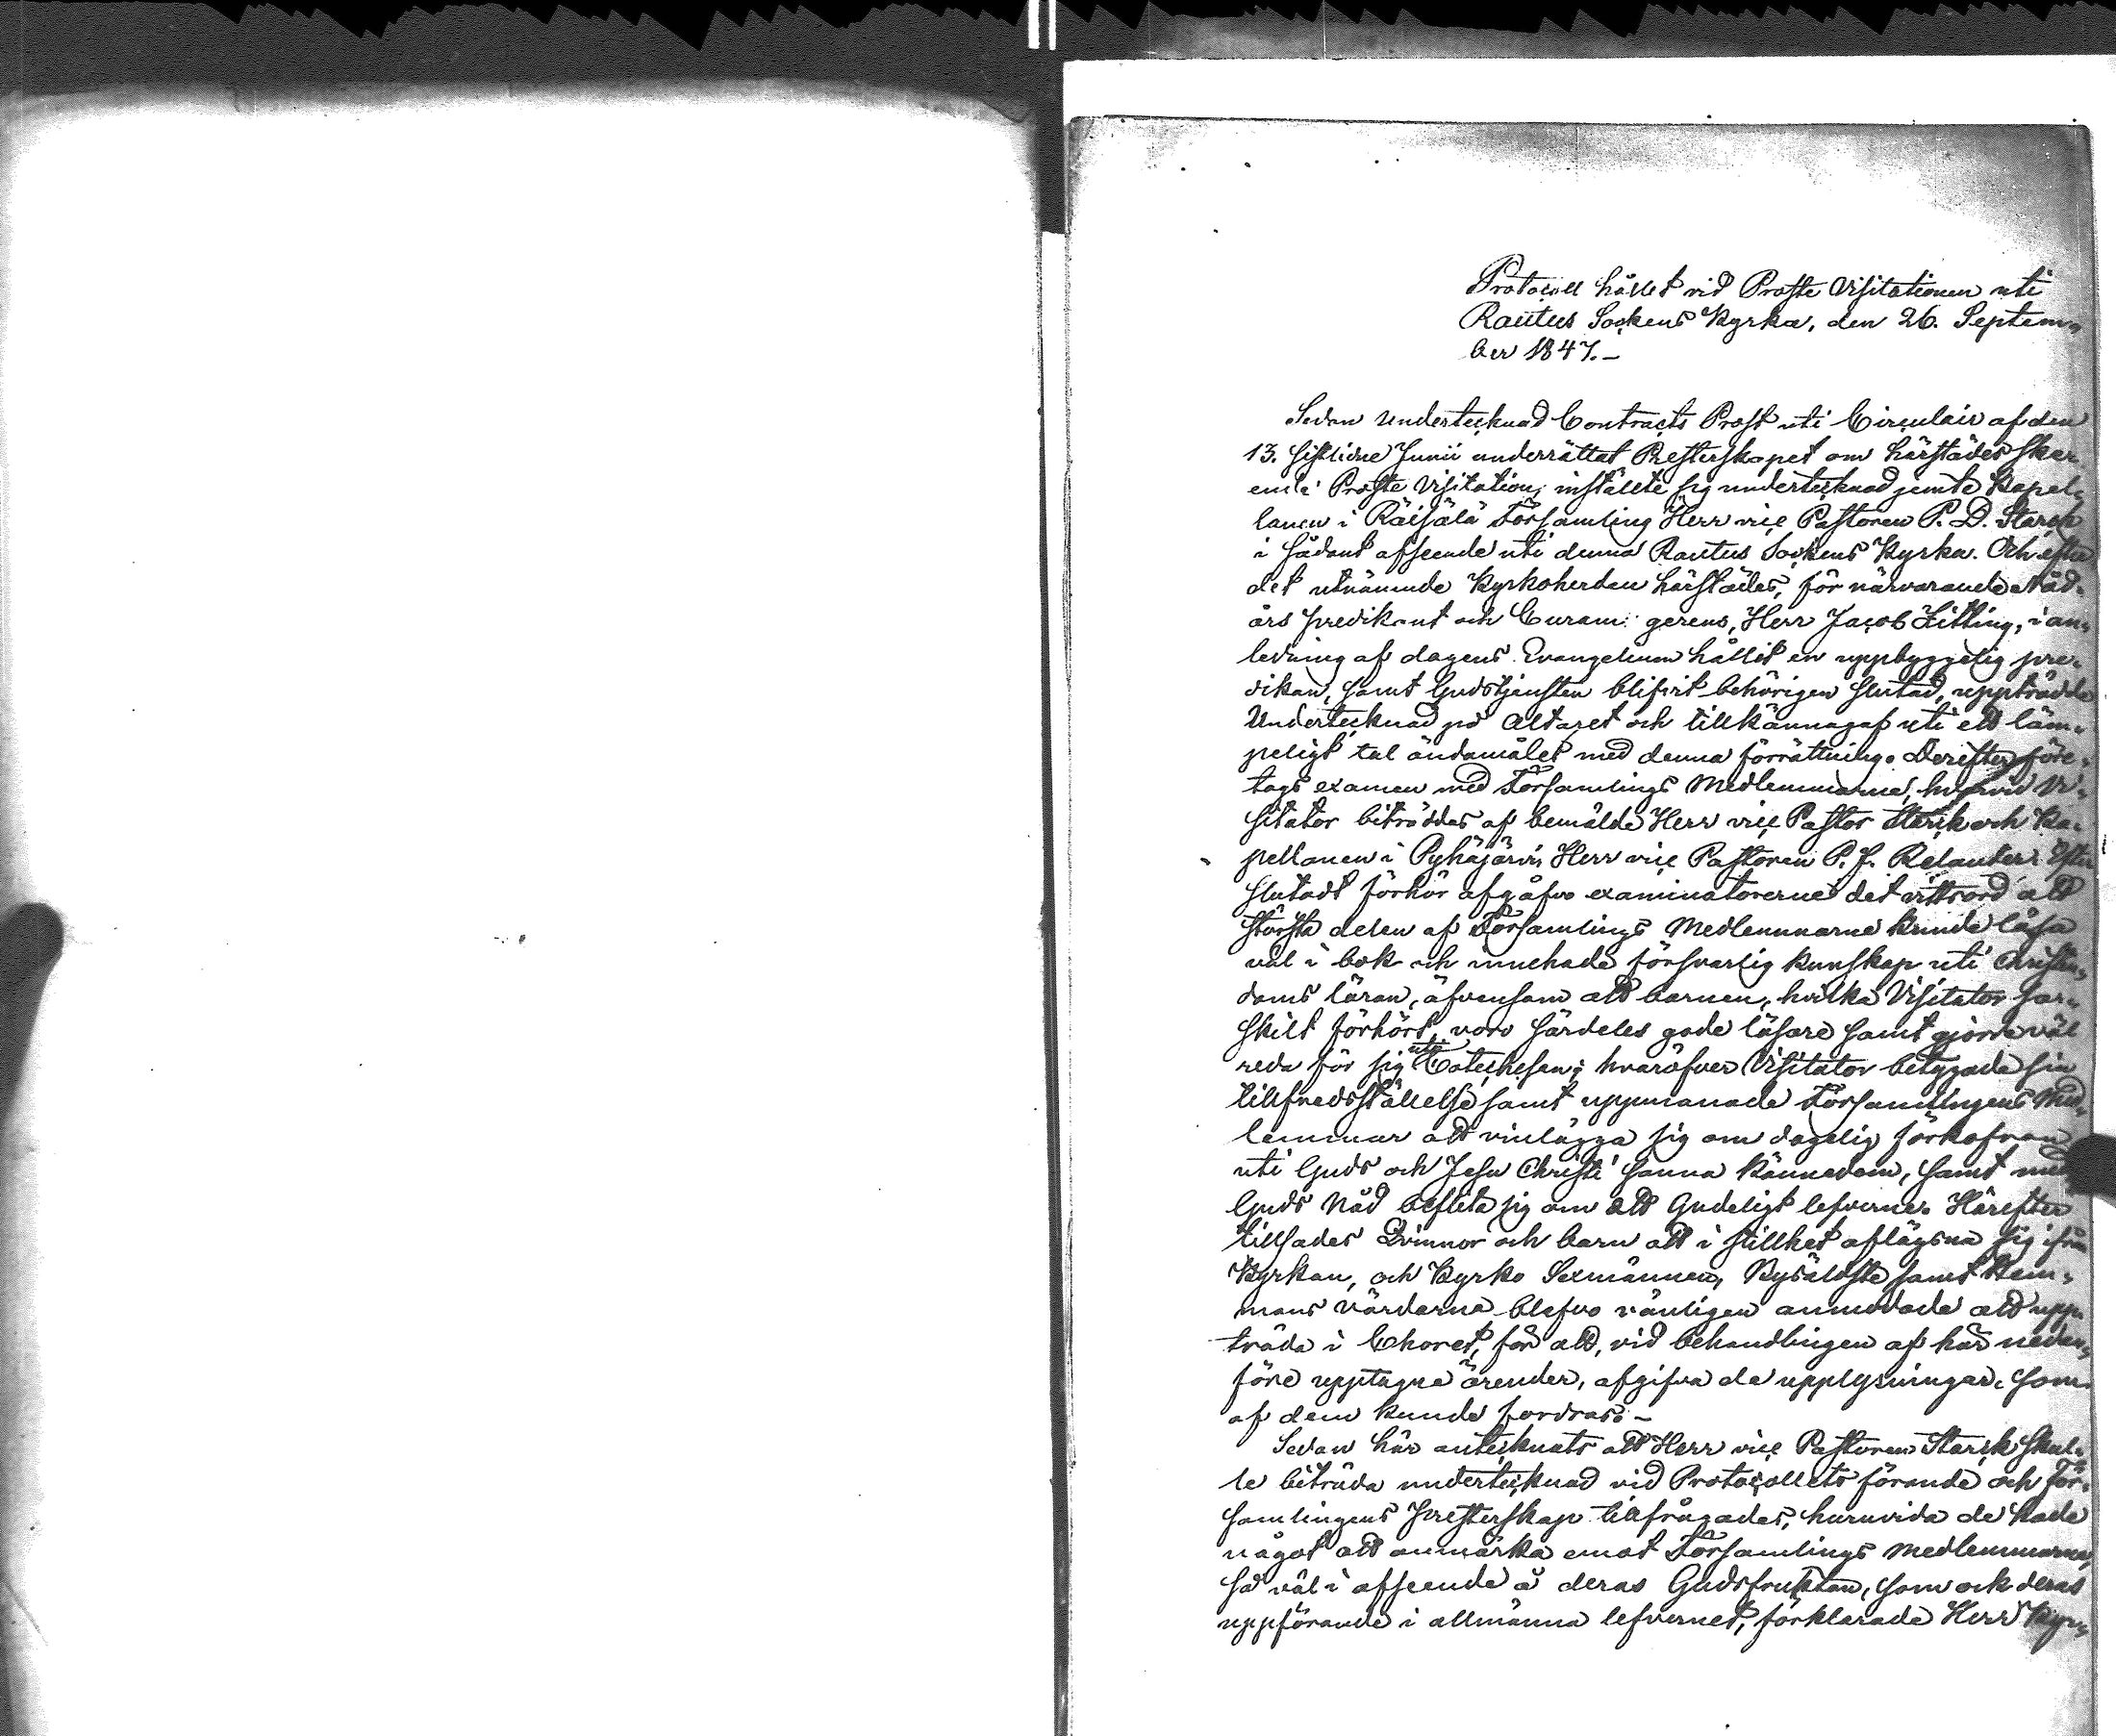 Protocoll hållet vid Proste Visitationen uti
Rautus Sockens Kyrka, den 26. Septem„
ber 1847.–
Sedan undertecknad Contracts Prost uti Circulair af den
13. sistlidne Junii underrättat Presterskapet om härstädes ske„
ende Proste Visitation, inställte sig undertecknad jemte Kapel„
lanen i Räisälä Församling Herr vice Pastoren P. D. Starck
i sådant afseende uti denna Rautus Sockens Kyrka. Och efter
det utnämnde Kyrkoherden härstädes, för närvarande Nåd„
års predikant och Curam gerens, Herr Jacob Zitting, i an„
ledning af dagens Evangelium hållit en uppbyggelig pre„
dikan, samt Gudstjensten blifvit behörigen slutad, uppträdde
Undertecknad på Altaret och tillkännagaf uti ett läm„
peligt tal ändamålet med denna förrättning. Derefter före„
togs examen med Församlings Medlemmarne, hvarvid Vi„
sitator biträddes af bemälde Herr vice Pastor Starck och Ka„
pellanen i Pyhäjärvi Herr vice Pastoren P. J. Relander. Efter
slutadt förhör afgåfvo examinatorerne det vittsord att
största delen af Församlings Medlemmarne kunde läsa
väl i bok och innehade försvarlig kunskap uti Christen„
doms läran, äfvensom att barnen, hvilka Visitator sär„
skilt förhört, voro särdeles gode läsare samt gjorde väl
reda för sig uti Catechesen; hvaröfver Visitator betygade sin
tillfredsställelse samt uppmanade Församlingens Med„
lemmar att vinlägga sig om dagelig förkofran
uti Guds och Jesu Christi sanna kännedom, samt med
Guds Nåd beflita sig om ett Gudeligt lefverne. Härefter
tillsades Qvinnor och barn att i stillhet aflägsna sig ifrån
Kyrkan, och Kyrko Sexmännen, Byäldste samt Hem„
mans värdarne blefvo vänligen anmodade att upp„
träda i Choret, för att, vid behandlingen af här nedan„
före upptagne ärender, afgifva de upplysningar, som
af dem kunde fordras.–
Sedan här antecknats att Herr vice Pastoren Starck skul„
le biträda undertecknad vid Protocollets förande och För„
samlingens Presterskap tillfrågades, huruvida de hade
något att anmärka emot Församlings medlemmarne,
så väl i afseende å deras Gudsfruktan, som ock deras
uppförande i allmänna lefvernet, förklarade Herr Kyr„